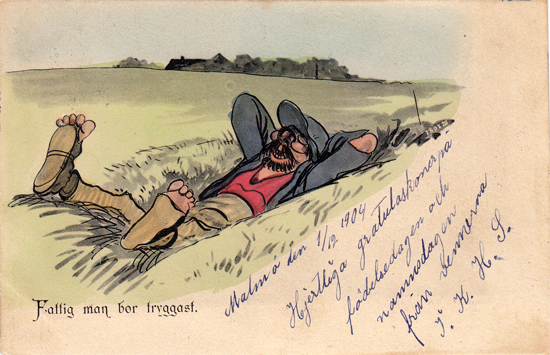 Fattig man bor tryggast.
Malmö den 1/12 1904
Hjertliga gratulaskoner på
födelsedagen och
namnsdagen
från vännerna
I. K. H. S.